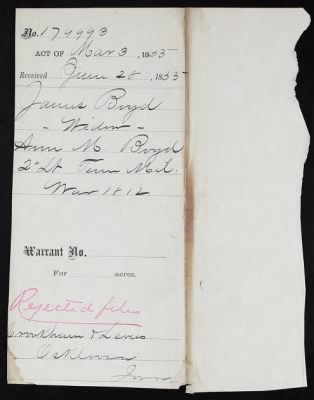 No. 179993
ACT OF Mar 3, 1855
Received June 28, 1855
James Boyd
- Widow -
Ann M Boyd
2" Lt Tenn Mil.
War 1812
Warrant No.
For acres.
Rejected files
Crookham & Lewis
Oskloosa
Iowa